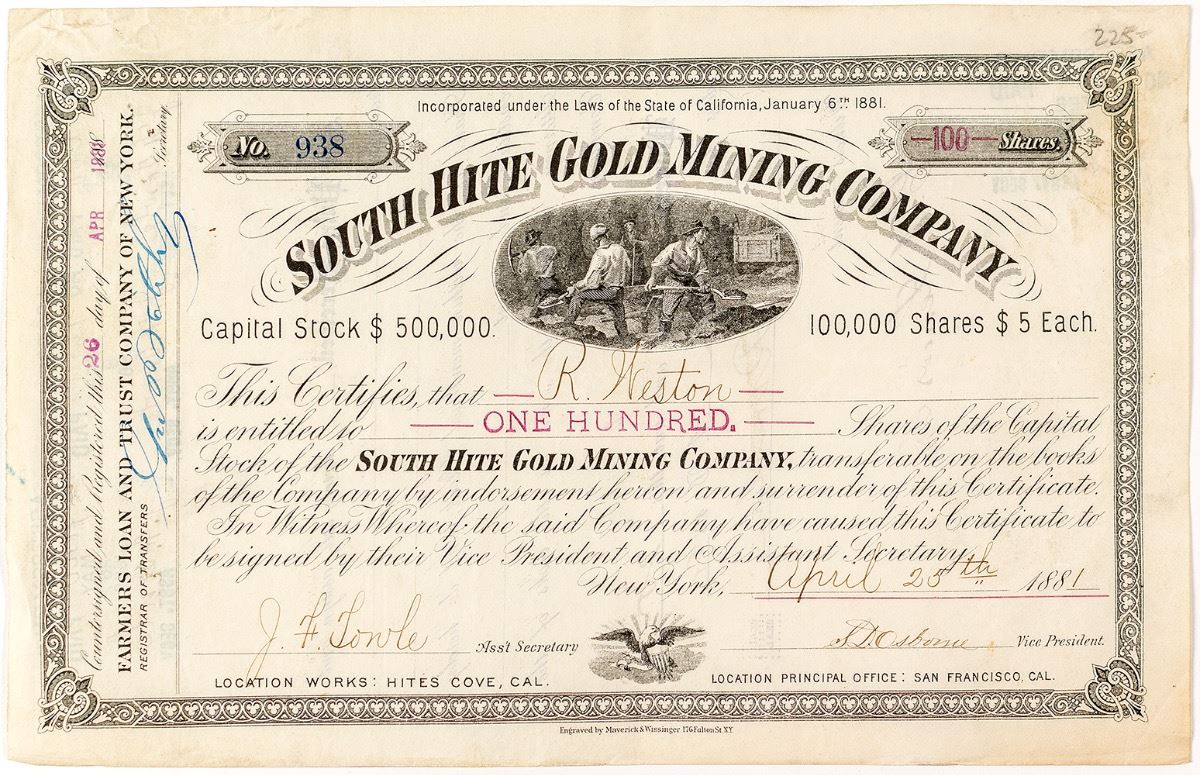 225-
Incorporated under the Laws of the State of California, January 6TH 1881.
No. 938
-100- Shares.
SOUTH HITE GOLD MINING COMPANY
Capital Stock $ 500,000.
100,000 Shares $ 5 Each.
This Certifies, that R. Weston
is entitled to ONE HUNDRED. Shares of the Capital
Stock of the SOUTH HITE GOLD MINING COMPANY, transferable on the books
of the Company by indorsement hereon and surrender of this Certificate.
In Witness Whereof, the said Company have caused this Certificate to
be signed by their Vice President and Assistant Secretary
New York, April 25th 1881
J. F. Towle Ass't Secretary
S D Osborne Vice President.
LOCATION WORKS: HITES COVE, CAL.
LOCATION PRINCIPAL OFFICE: SAN FRANCISCO, CAL.
Engraved by Maverick & Wissinger 176 Fulton St. N.Y.
Countersigned and Registered this 26 day of APR 1881
FARMERS LOAN AND TRUST COMPANY OF NEW YORK.
REGISTRAR OF TRANSFERS
Secretary.